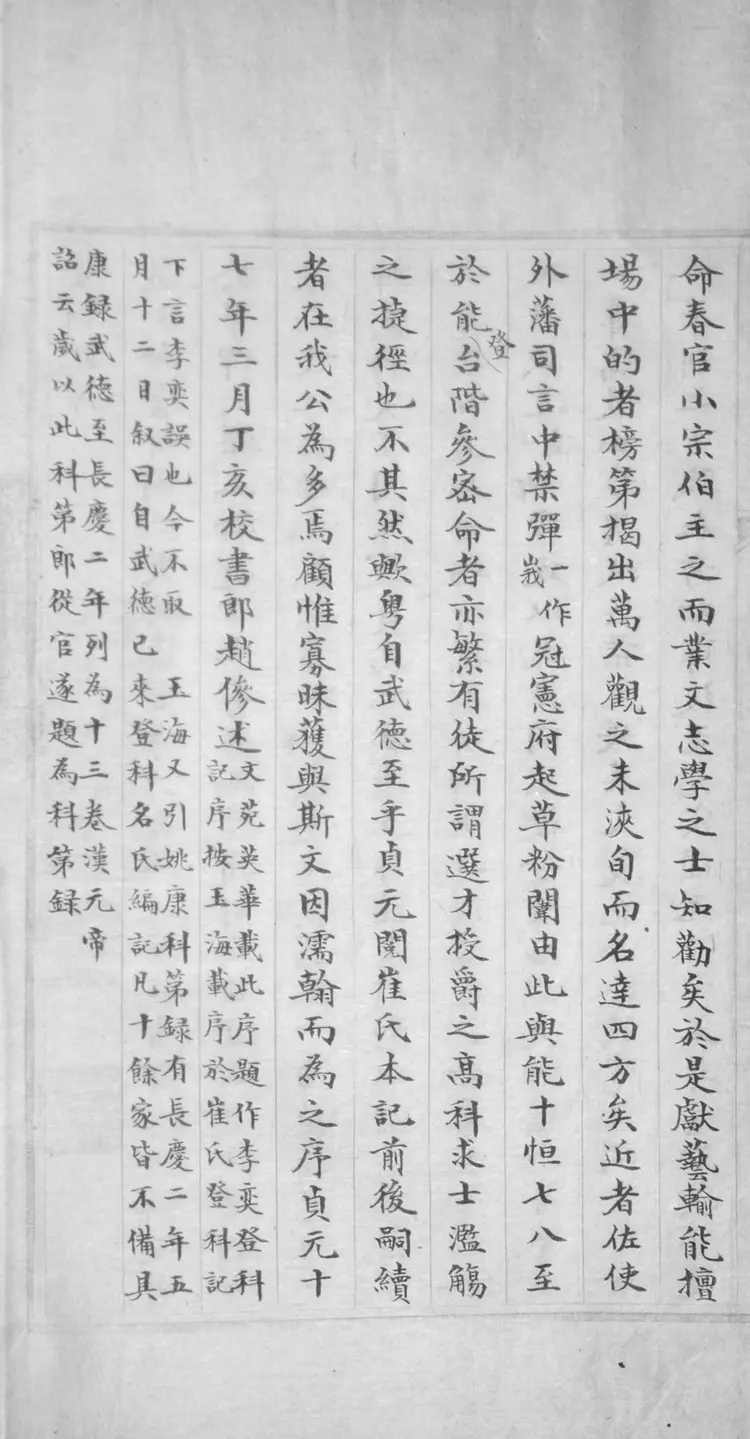 命春官小宗伯主之而業文志學之士知勸矣於是獻藝輸能擅
場中的者榜第揭出萬人觀之未浹旬而名達四方矣近者佐使
外藩司言中禁彈一作峩冠憲府起草粉闈由此與能十恒七八至
於能登台階參密命者亦繁有徒所謂選才授爵之高科求士濫觴
之捷徑也不其然歟粵自武德至乎貞元閱崔氏本記前後嗣續
者在我公為多焉顧惟寡昧獲與斯文因濡翰而為之序貞元十
七年三月丁亥校書郎趙傪述
文苑英華載此序題作李奕登科
記序按玉海載序於崔氏登科記
下言李奕誤也今不取 玉海又引姚康科第録有長慶二年五
月十二日叙曰自武德已來登科名氏編記凡十餘家皆不備具
康録武德至長慶二年列為十三卷漢元帝
詔云歲以此科第郎從官遂題為科第録